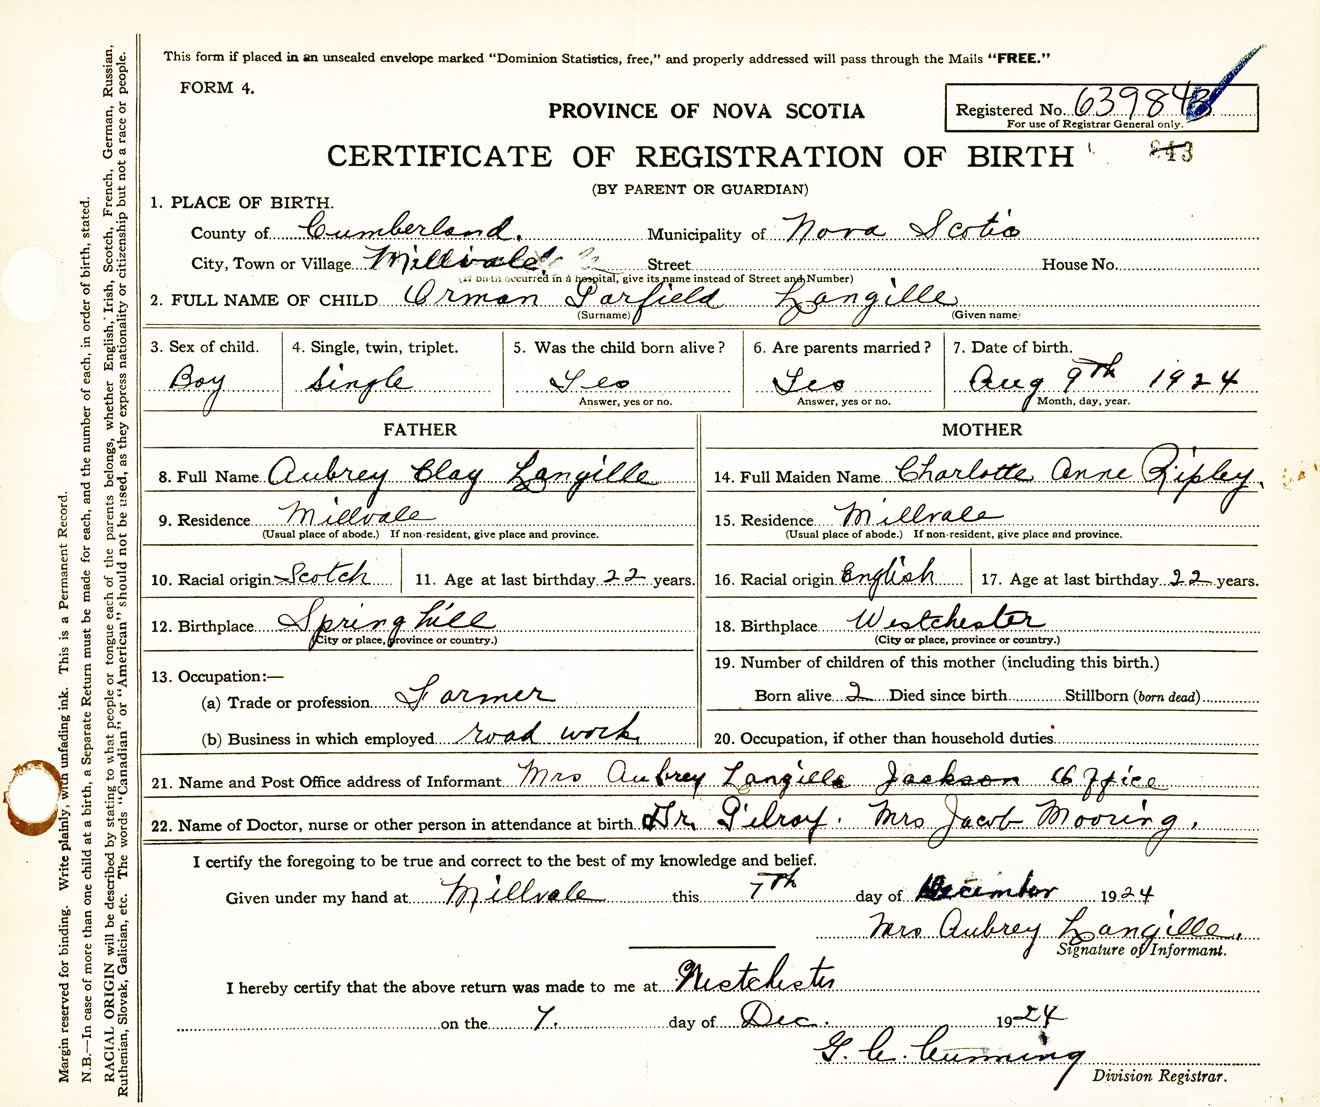 This form if placed in an unsealed envelope marked “Dominion Statistics, free,” and properly addressed will pass through the Mails “FREE.”
FORM 4.
PROVINCE OF NOVA SCOTIA
Registered No. 639843
For use of Registrar General only.
CERTIFICATE OF REGISTRATION OF BIRTH
243
(BY PARENT OR GUARDIAN)
1. PLACE OF BIRTH.
County of Cumberland. Municipality of Nova Scotia
City, Town or Village Millvale Street House No.
(If birth occurred in a hospital, give its name instead of Street and Number)
2. FULL NAME OF CHILD Orman Garfield Langille
(Surname) (Given name)
3. Sex of child. 4. Single, twin, triplet. 5. Was the child born alive? 6. Are parents married? 7. Date of birth.
Boy Single Yes Yes Aug 9th 1924
Answer, yes or no. Answer, yes or no. Month, day, year.
FATHER MOTHER
8. Full Name Aubrey Clay Langille 14. Full Maiden Name Charlotte Anne Ripley.
9. Residence Millvale 15. Residence Millvale
(Usual place of abode.) If non-resident, give place and province. (Usual place of abode.) If non-resident, give place and province.
10. Racial origin Scotch 11. Age at last birthday 22 years. 16. Racial origin English 17. Age at last birthday 22 years.
12. Birthplace Springhill 18. Birthplace Westchester
(City or place, province or country.) (City or place, province or country.)
13. Occupation:— 19. Number of children of this mother (including this birth.)
(a) Trade or profession Farmer Born alive 2 Died since birth Stillborn (born dead)
(b) Business in which employed road work 20. Occupation, if other than household duties
21. Name and Post Office address of Informant Mrs Aubrey Langille Jackson Office
22. Name of Doctor, nurse or other person in attendance at birth Dr. Gilroy. Mrs Jacob Mooring.
I certify the foregoing to be true and correct to the best of my knowledge and belief.
Given under my hand at Millvale this 7th day of December 1924
Mrs Aubrey Langille.
Signature of Informant.
I hereby certify that the above return was made to me at Westchester
on the 7. day of Dec. 1924
G. C. Cumming
Division Registrar.
Margin reserved for binding. Write plainly, with unfading ink. This is a Permanent Record.
N.B.—In case of more than one child at a birth, a Separate Return must be made for each, and the number of each, in order of birth, stated.
RACIAL ORIGIN will be described by stating to what people or tongue each of the parents belongs, whether English, Irish, Scotch, French, German, Russian,
Ruthenian, Slovak, Galician, etc. The words “Canadian” or “American” should not be used, as they express nationality or citizenship but not a race or people.